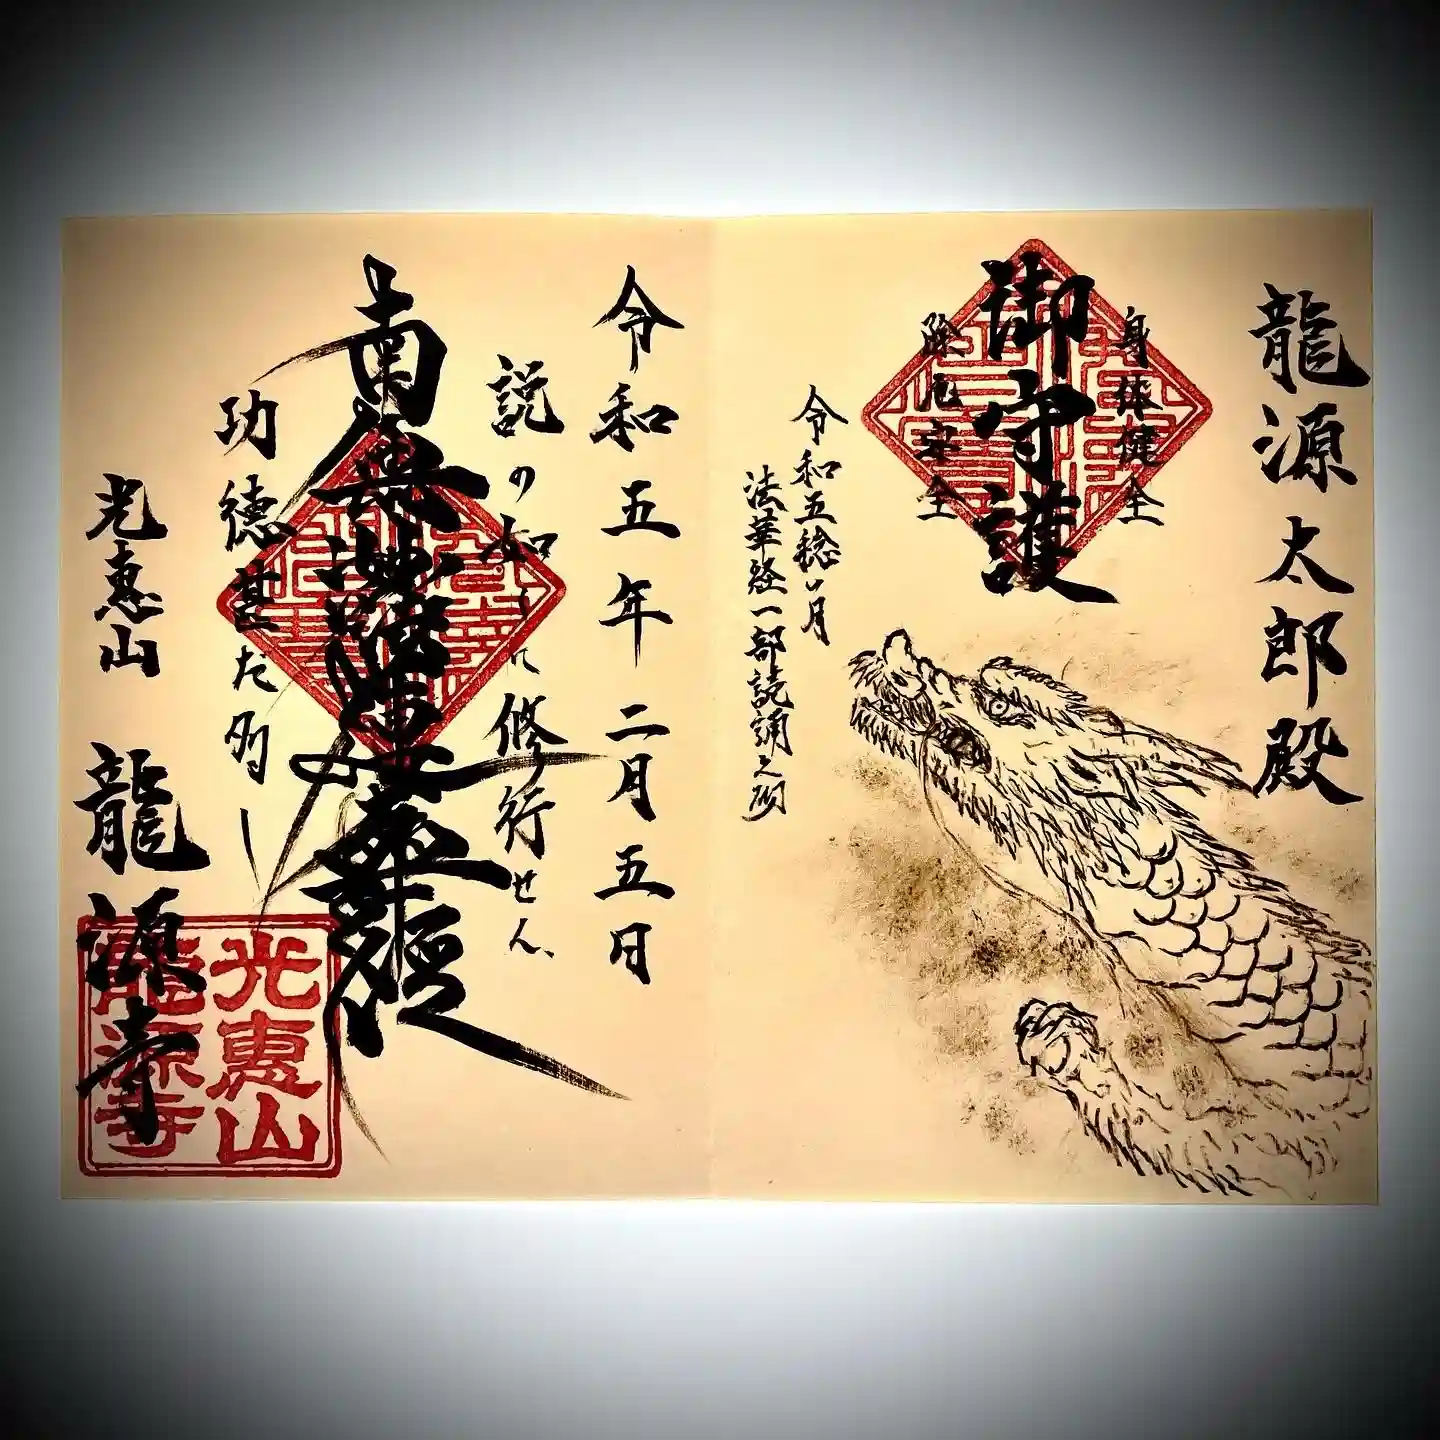 龍源太郎殿
身体健全
御守護
除厄安全
令和五稔二月
法華経一部読誦之砌
令和五年二月五日
説の如くに修行せん、
南無妙法蓮華経
功徳甚だ多し
光恵山 龍源寺
光恵山
龍源寺